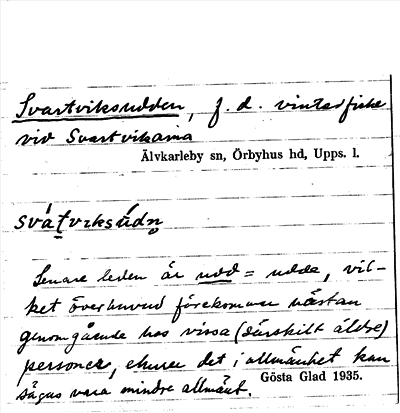 Svartviksudden, f. d. vinterfiske
vid Svartvikarna
Älvkarleby sn, Örbyhus hd, Upps. l.
svátviksúdn̥
Senare leden är udd = udde, vil-
ket överhuvud förekommer nästan
genomgående hos vissa (särskilt äldre)
personer, ehuru det i allmänhet kan
sägas vara mindre allmänt.
Gösta Glad 1935.